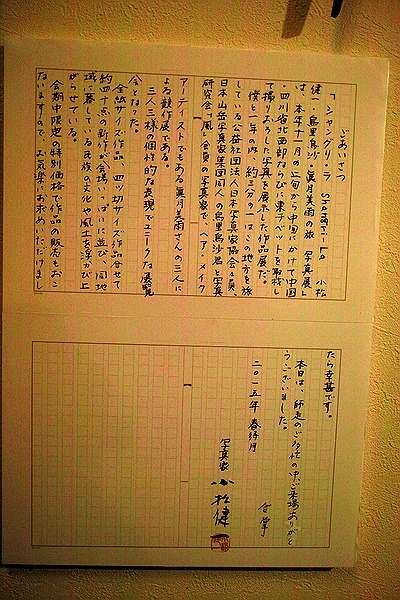 ごあいさつ
「シャングリ・ラ Shangri-La 小松
健一・烏里烏沙・眞月美雨の旅 写真展」
は、本年十一月の上旬から中旬にかけて中国
・四川省北西部ならびに東チベットを取材し
て撮りおろし写真を展示した作品展だ。
僕と一年の内、約三分の一はこの地方を旅
している公益社団法人日本写真家協会々員、
日本山岳写真家集団同人の烏里烏沙君と写真
研究会「風」会員の写真家で、ヘア・メイク
アーティストでもある眞月美雨さんの三人に
よる競作展である。
三人三様の個性的な表現でユニークな展覧
会となった。
全紙サイズ作品、四ツ切サイズ作品合せて
約四十点の新作が会場いっぱいに並び、同地
域に暮している民族の文化や風土を浮かび上
がらせている。
会期中限定の特別価格で作品の販売もおこ
ないますので、お気楽にお求めいただけまし
たら幸甚です。
本日は、師走のご多忙の中、ご来場ありがと
うございました。
合掌
二〇一五年 春待月
写真家 小松健一